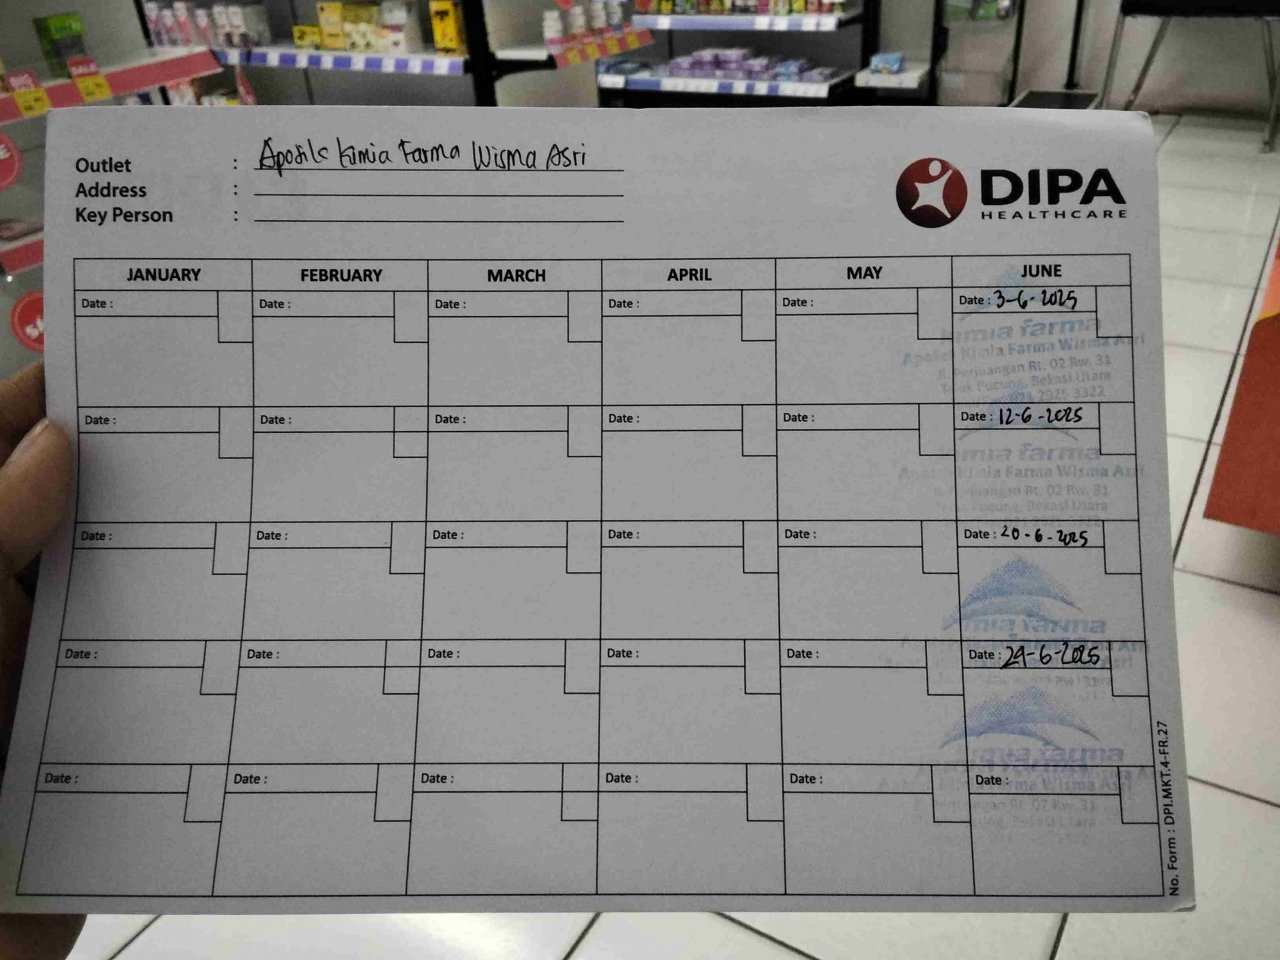 Outlet : Apotik Kimia Farma Wisma Asri
Address :
Key Person :
DIPA
HEALTHCARE
JANUARY FEBRUARY MARCH APRIL MAY JUNE
Date : Date : Date : Date : Date : Date : 3-6-2025
kimia farma
Apotek Kimia Farma Wisma Asri
Jl. Perjuangan Rt. 02 Rw. 31
Teluk Pucung, Bekasi Utara
2925 3322
Date : Date : Date : Date : Date : Date : 12-6-2025
kimia farma
Apotek Kimia Farma Wisma Asri
Jl. Perjuangan Rt. 02 Rw. 31
Teluk Pucung, Bekasi Utara
Date : Date : Date : Date : Date : Date : 20-6-2025
kimia farma
Date : Date : Date : Date : Date : Date : 29-6-2025
kimia farma
Date : Date : Date : Date : Date : Date :
Farma Wisma Asri
Bekasi Utara
No. Form : DPI.MKT.4-FR.27